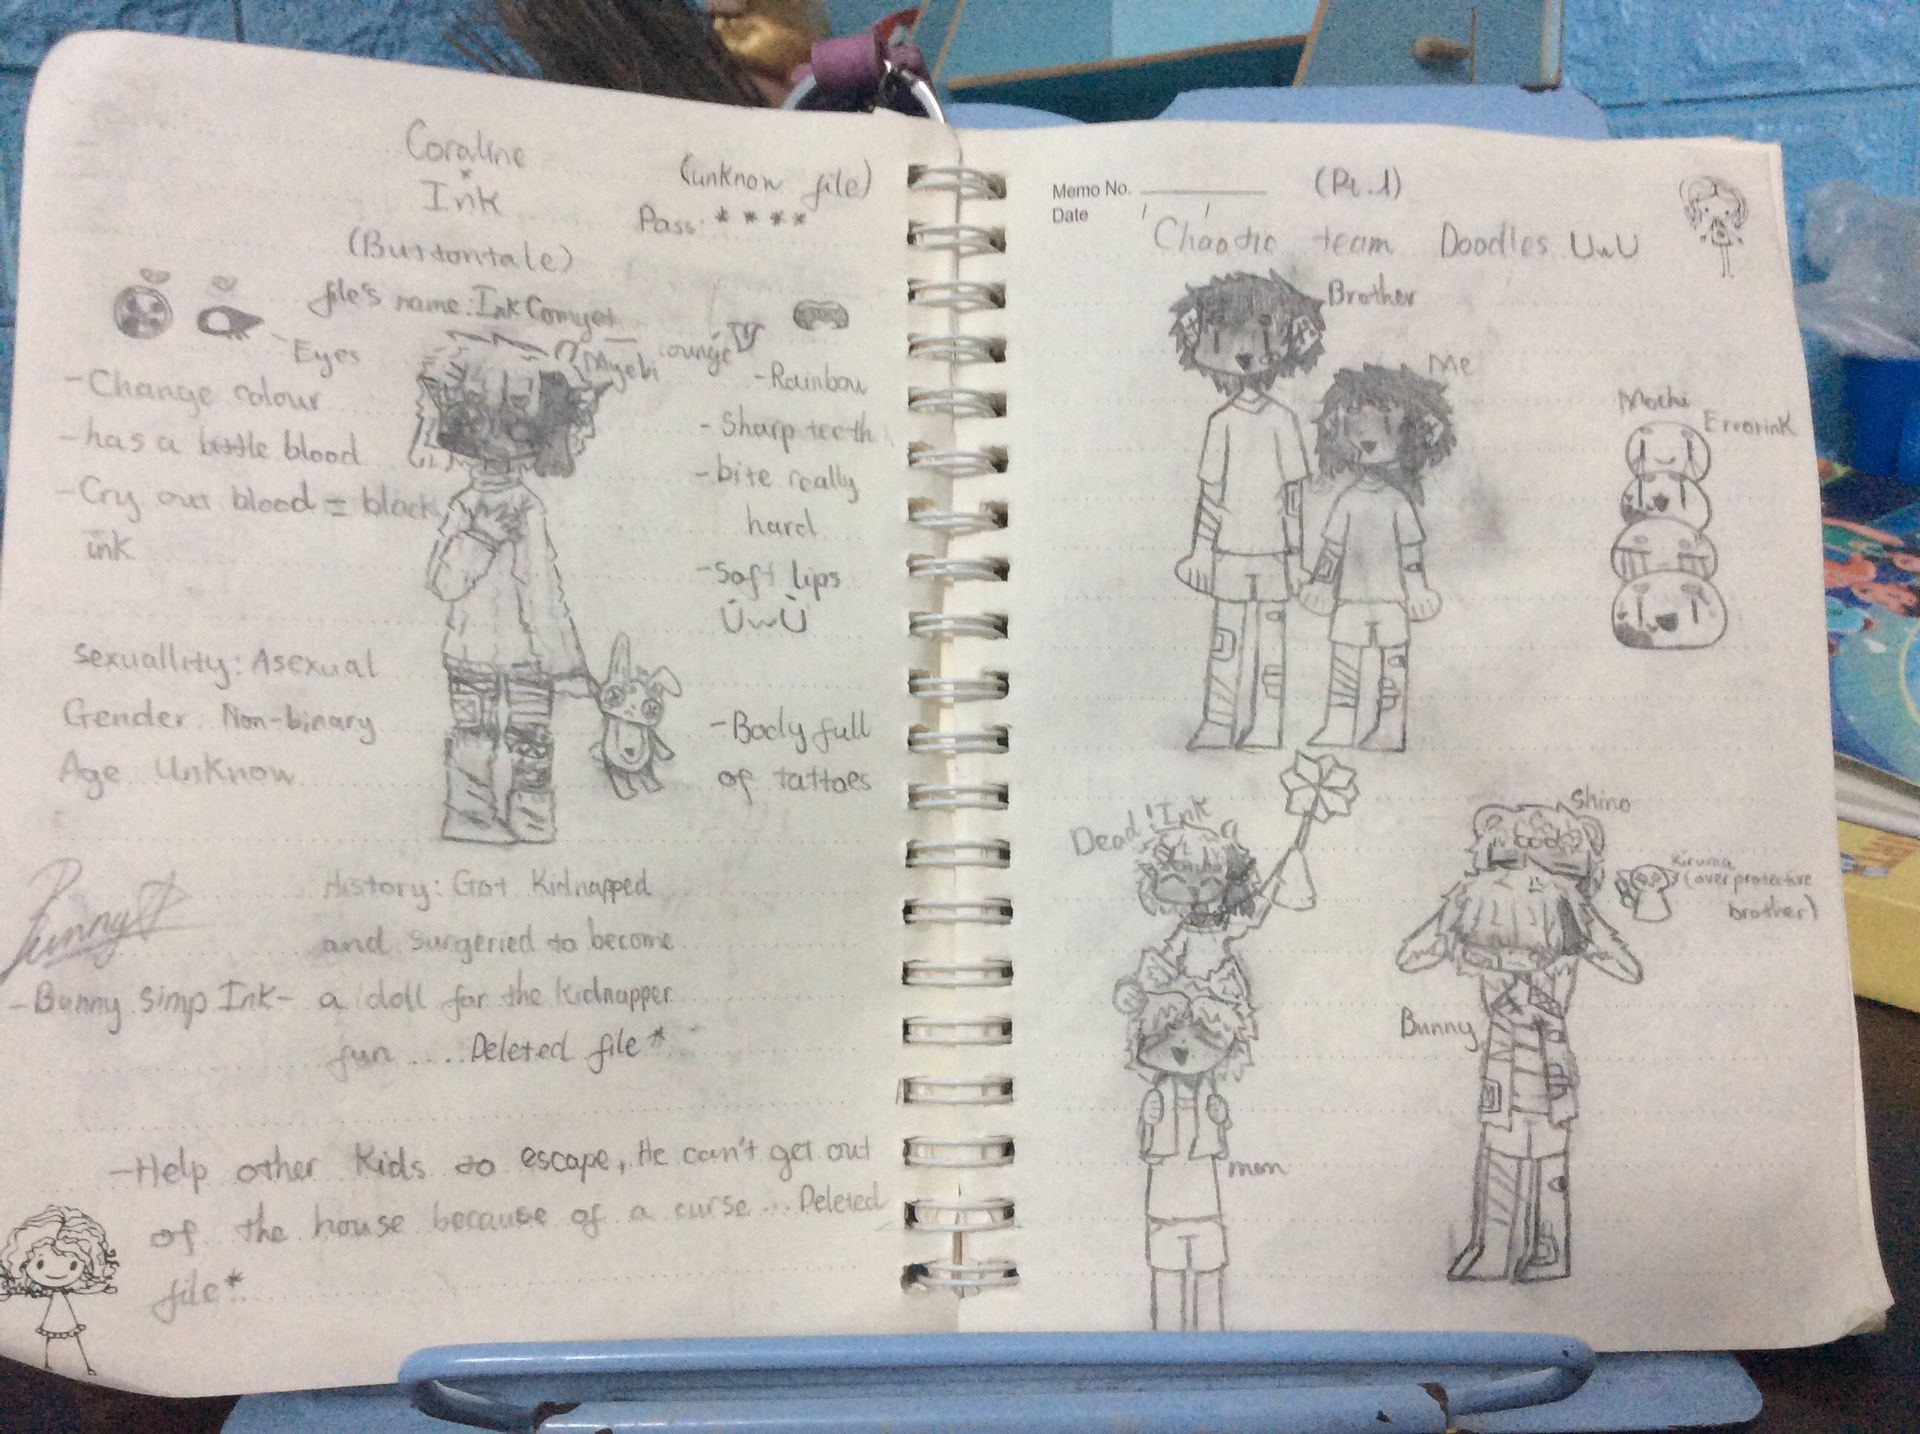 Coraline
*
Ink
(unknow file)
Pass: ****
(Buttontale)
file's name: Ink Comyet
Myebi
Eyes
- Change colour
- has a little blood
- Cry out blood = black
ink
- Rainbow
- Sharp teeth
- bite really
hard
- Soft lips
UwU
sexuallity: Asexual
Gender: Non-binary
Age Unknow
- Body full
of tattoes
History: Got Kidnapped
and surgeried to become
a doll for the kidnapper
fun .... Deleted file*
Bunny
- Bunny simp Ink -
- Help other Kids to escape, He can't get out
of the house because of a curse ... Deleted
file*
Memo No.
Date / /
(Pt.1)
Chaotic team Doodles UwU
Brother
Me
Mochi
Errorink
Dead!Ink
mom
Shino
Kiruma
(overprotective
brother)
Bunny